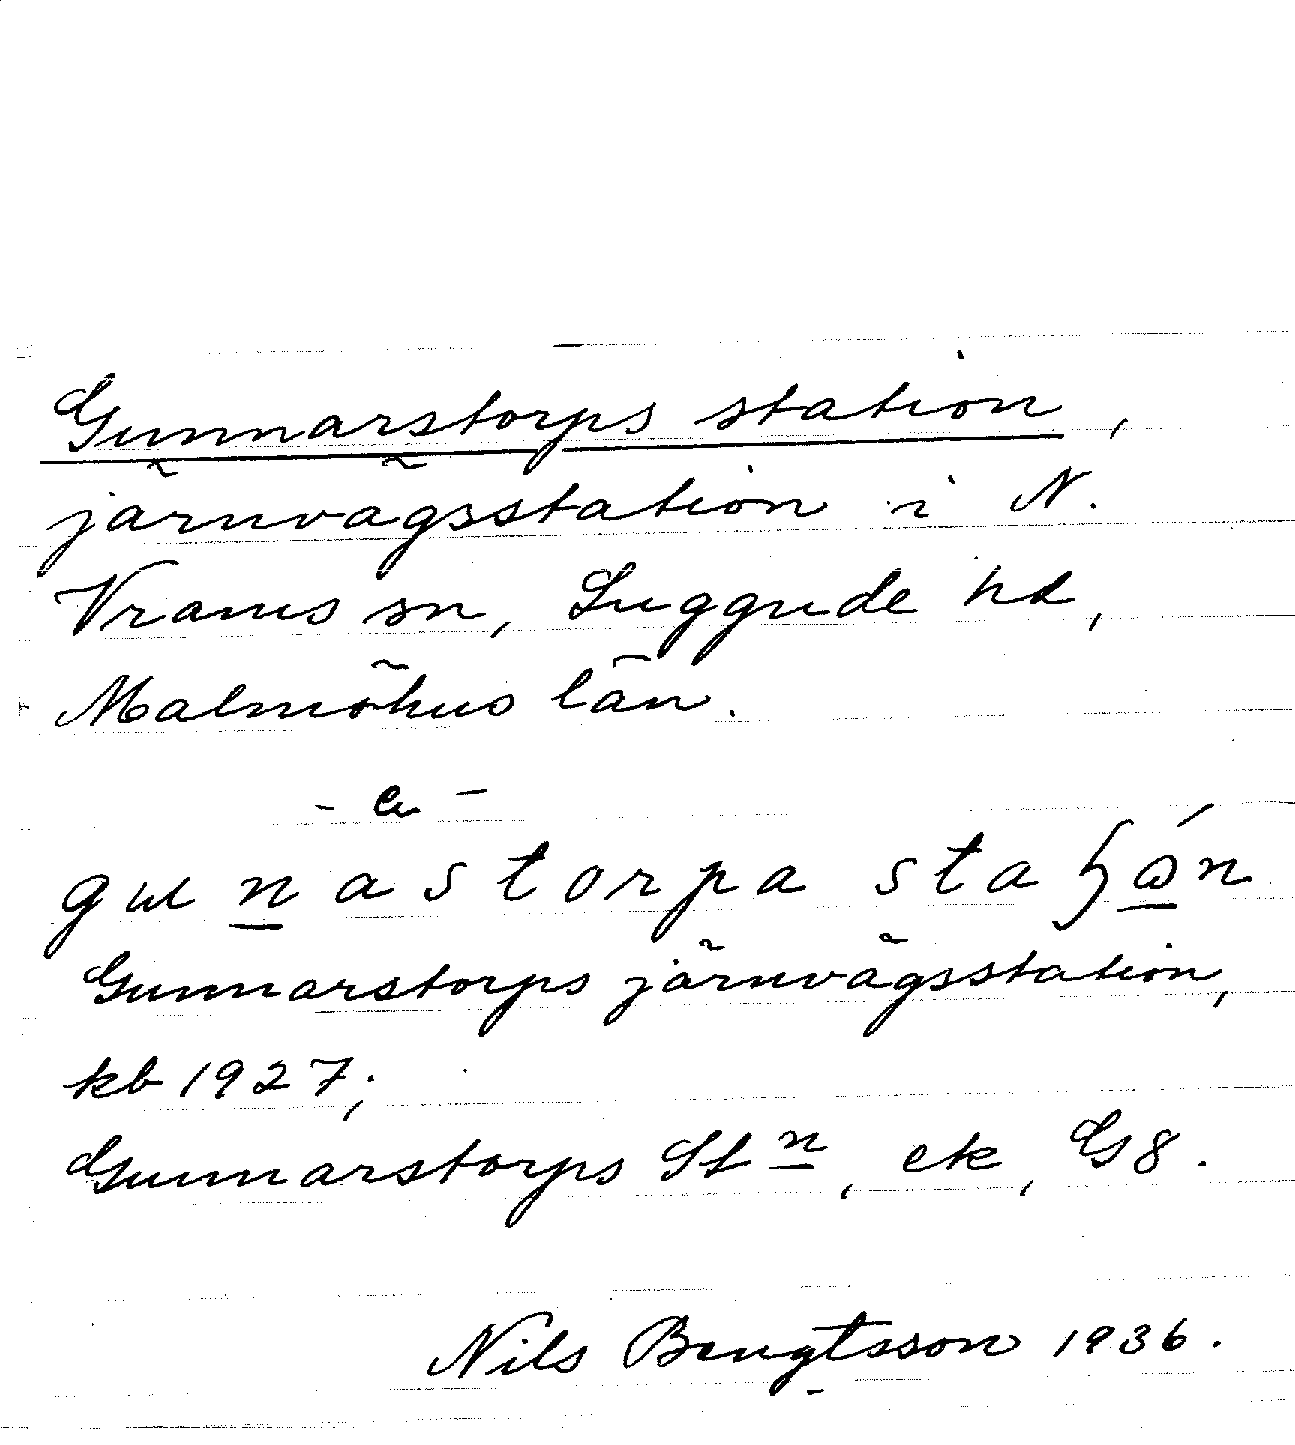 Gunnarstorps station,
järnvägsstation i N.
Vrams sn, Luggude hd,
Malmöhus län.
gunastorpa
Gunnarstorps järnvägsstation,
kb 1927;
Gunnarstorps Stn, ek, G8.
Nils Bengtsson 1936.